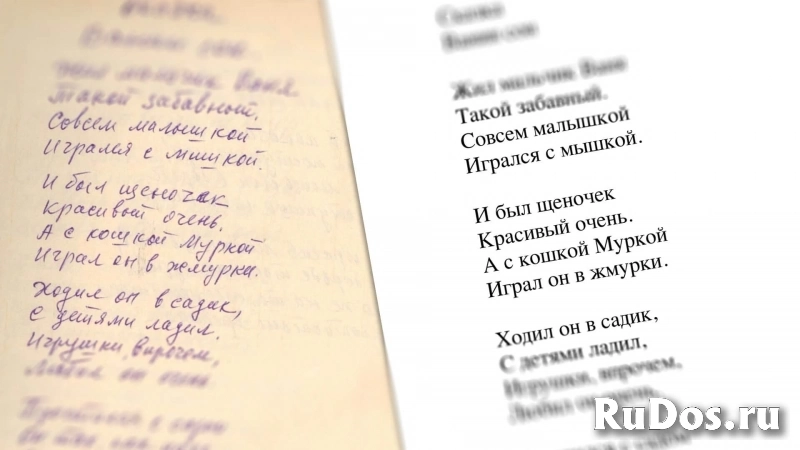 Жил мальчик Ваня
Такой забавный.
Совсем малышкой
Игрался с мишкой.
И был щеночек
Красивый очень.
А с кошкой Муркой
Играл он в жмурки.
Ходил он в садик,
С детями ладил.
Игрушки, впрочем,
Любил он очень.
Сказка
Жил мальчик Ваня
Такой забавный.
Совсем малышкой
Игрался с мышкой.
И был щеночек
Красивый очень.
А с кошкой Муркой
Играл он в жмурки.
Ходил он в садик,
С детями ладил,
Игрушки, впрочем,
Любил он очень.
RuDos.ru